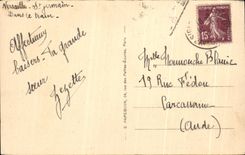 Versailles - St Germain
Dans le train
Affectueux
baisers - Ta grande
soeur
Zézette
15
Mlle Monmonche Blanic
19 Rue Fédou
Carcassonne
(Aude)